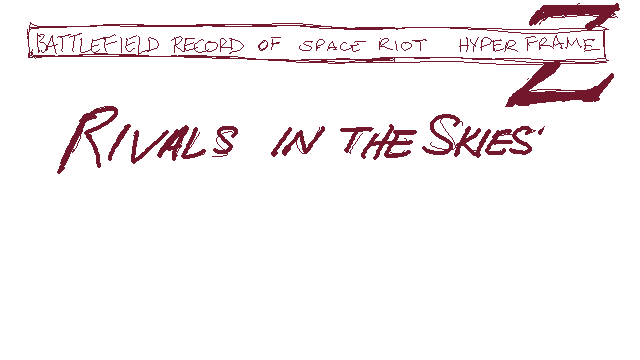 BATTLEFIELD RECORD OF SPACE RIOT HYPER FRAME Z
RIVALS IN THE SKIES